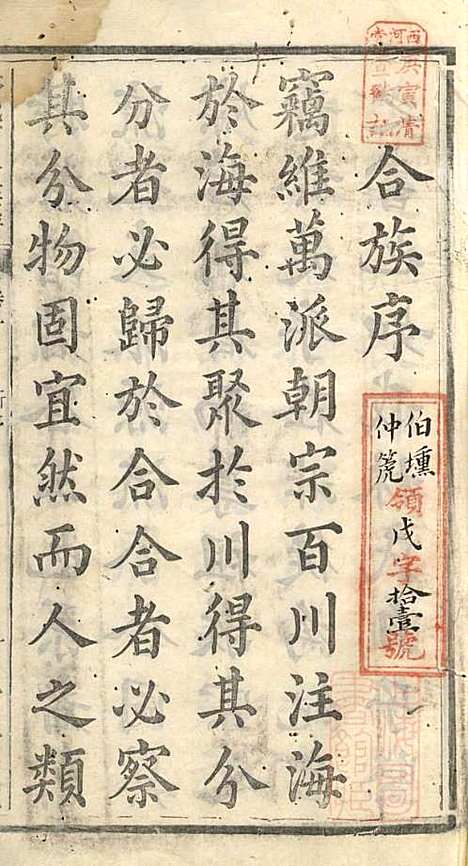 合族序
伯壎
仲箎
領戊字拾壹號
竊維萬派朝宗百川注海
於海得其聚於川得其分
分者必歸於合合者必察
其分物固宜然而人之類